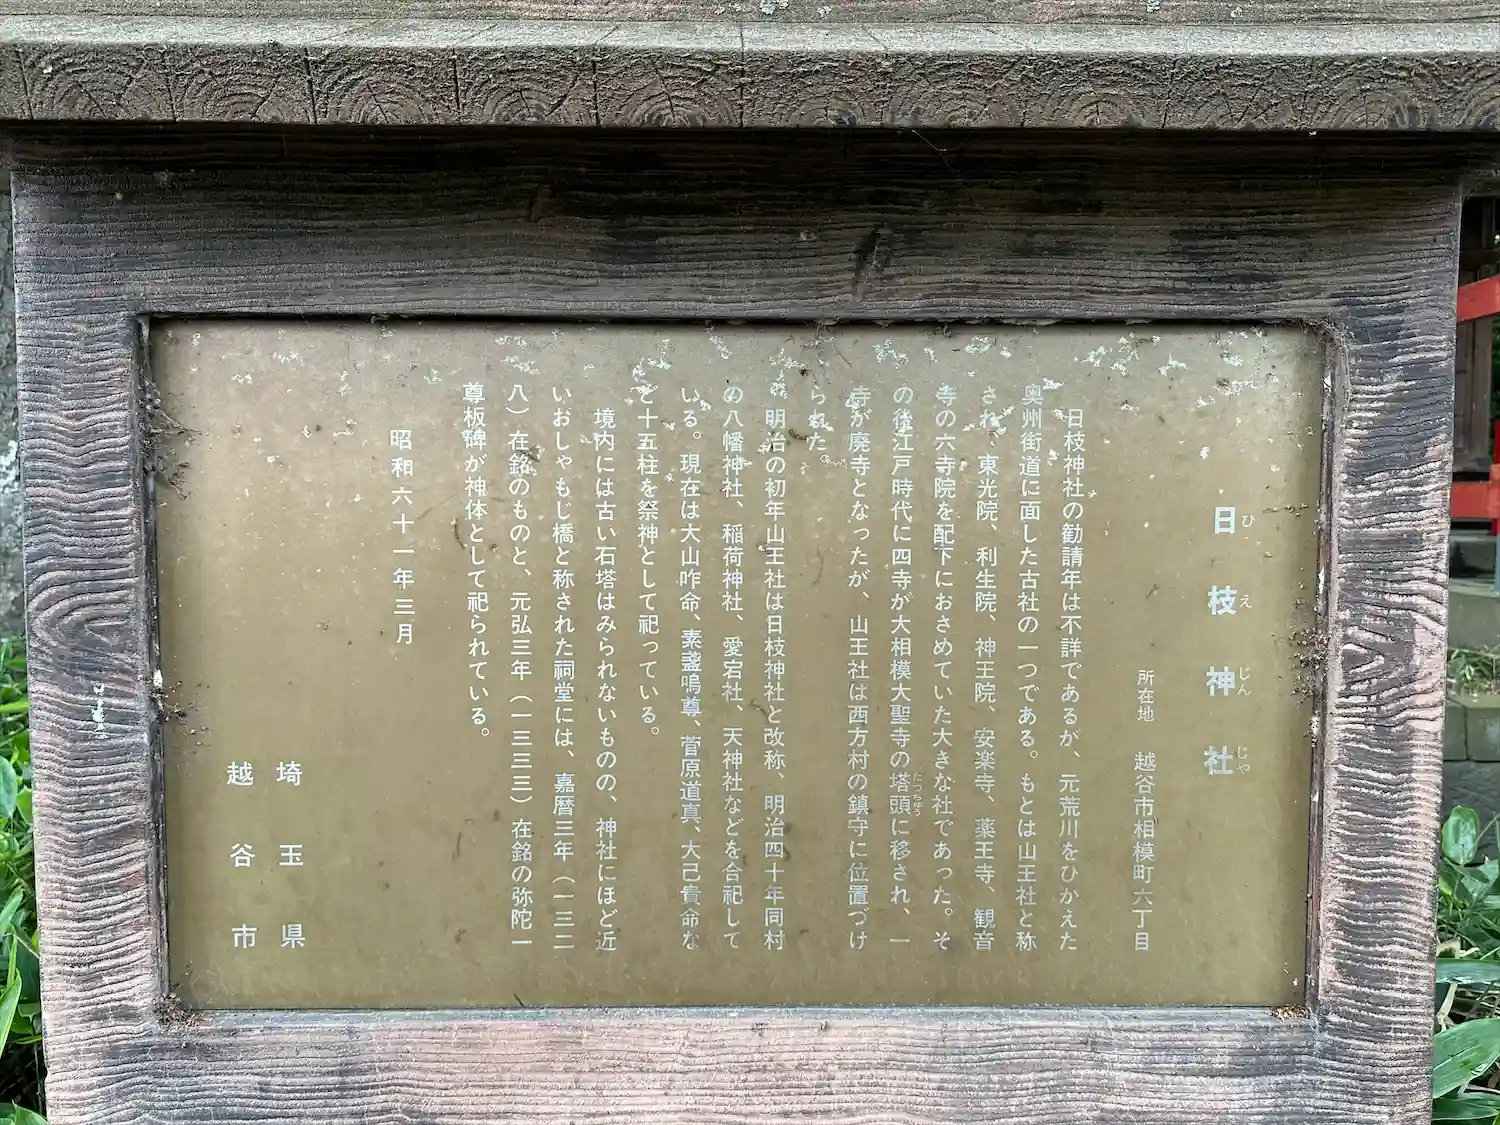 日枝神社
ひえじんじゃ
所在地 越谷市相模町六丁目
日枝神社の勧請年は不詳であるが、元荒川をひかえた
奥州街道に面した古社の一つである。もとは山王社と称
され、東光院、利生院、神王院、安楽寺、薬王寺、観音
寺の六寺院を配下におさめていた大きな社であった。そ
の後江戸時代に四寺が大相模大聖寺の塔頭に移され、一
たっちゅう
寺が廃寺となったが、山王社は西方村の鎮守に位置づけ
られた。
明治の初年山王社は日枝神社と改称、明治四十年同村
の八幡神社、稲荷神社、愛宕社、天神社などを合祀して
いる。現在は大山咋命、素盞嗚尊、菅原道真、大己貴命な
ど十五柱を祭神として祀っている。
境内には古い石塔はみられないものの、神社にほど近
いおしゃもじ橋と称された祠堂には、嘉暦三年（一三二
八）在銘のものと、元弘三年（一三三三）在銘の弥陀一
尊板碑が神体として祀られている。
昭和六十一年三月
埼玉県
越谷市